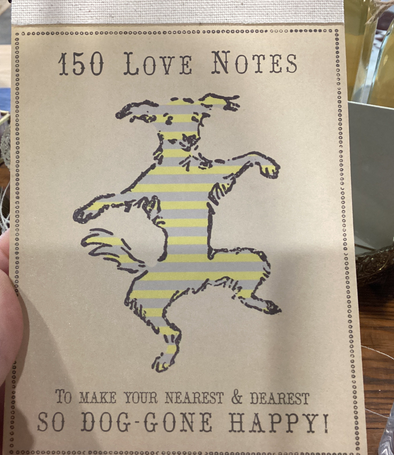 150 LOVE NOTES
TO MAKE YOUR NEAREST & DEAREST
SO DOG-GONE HAPPY!